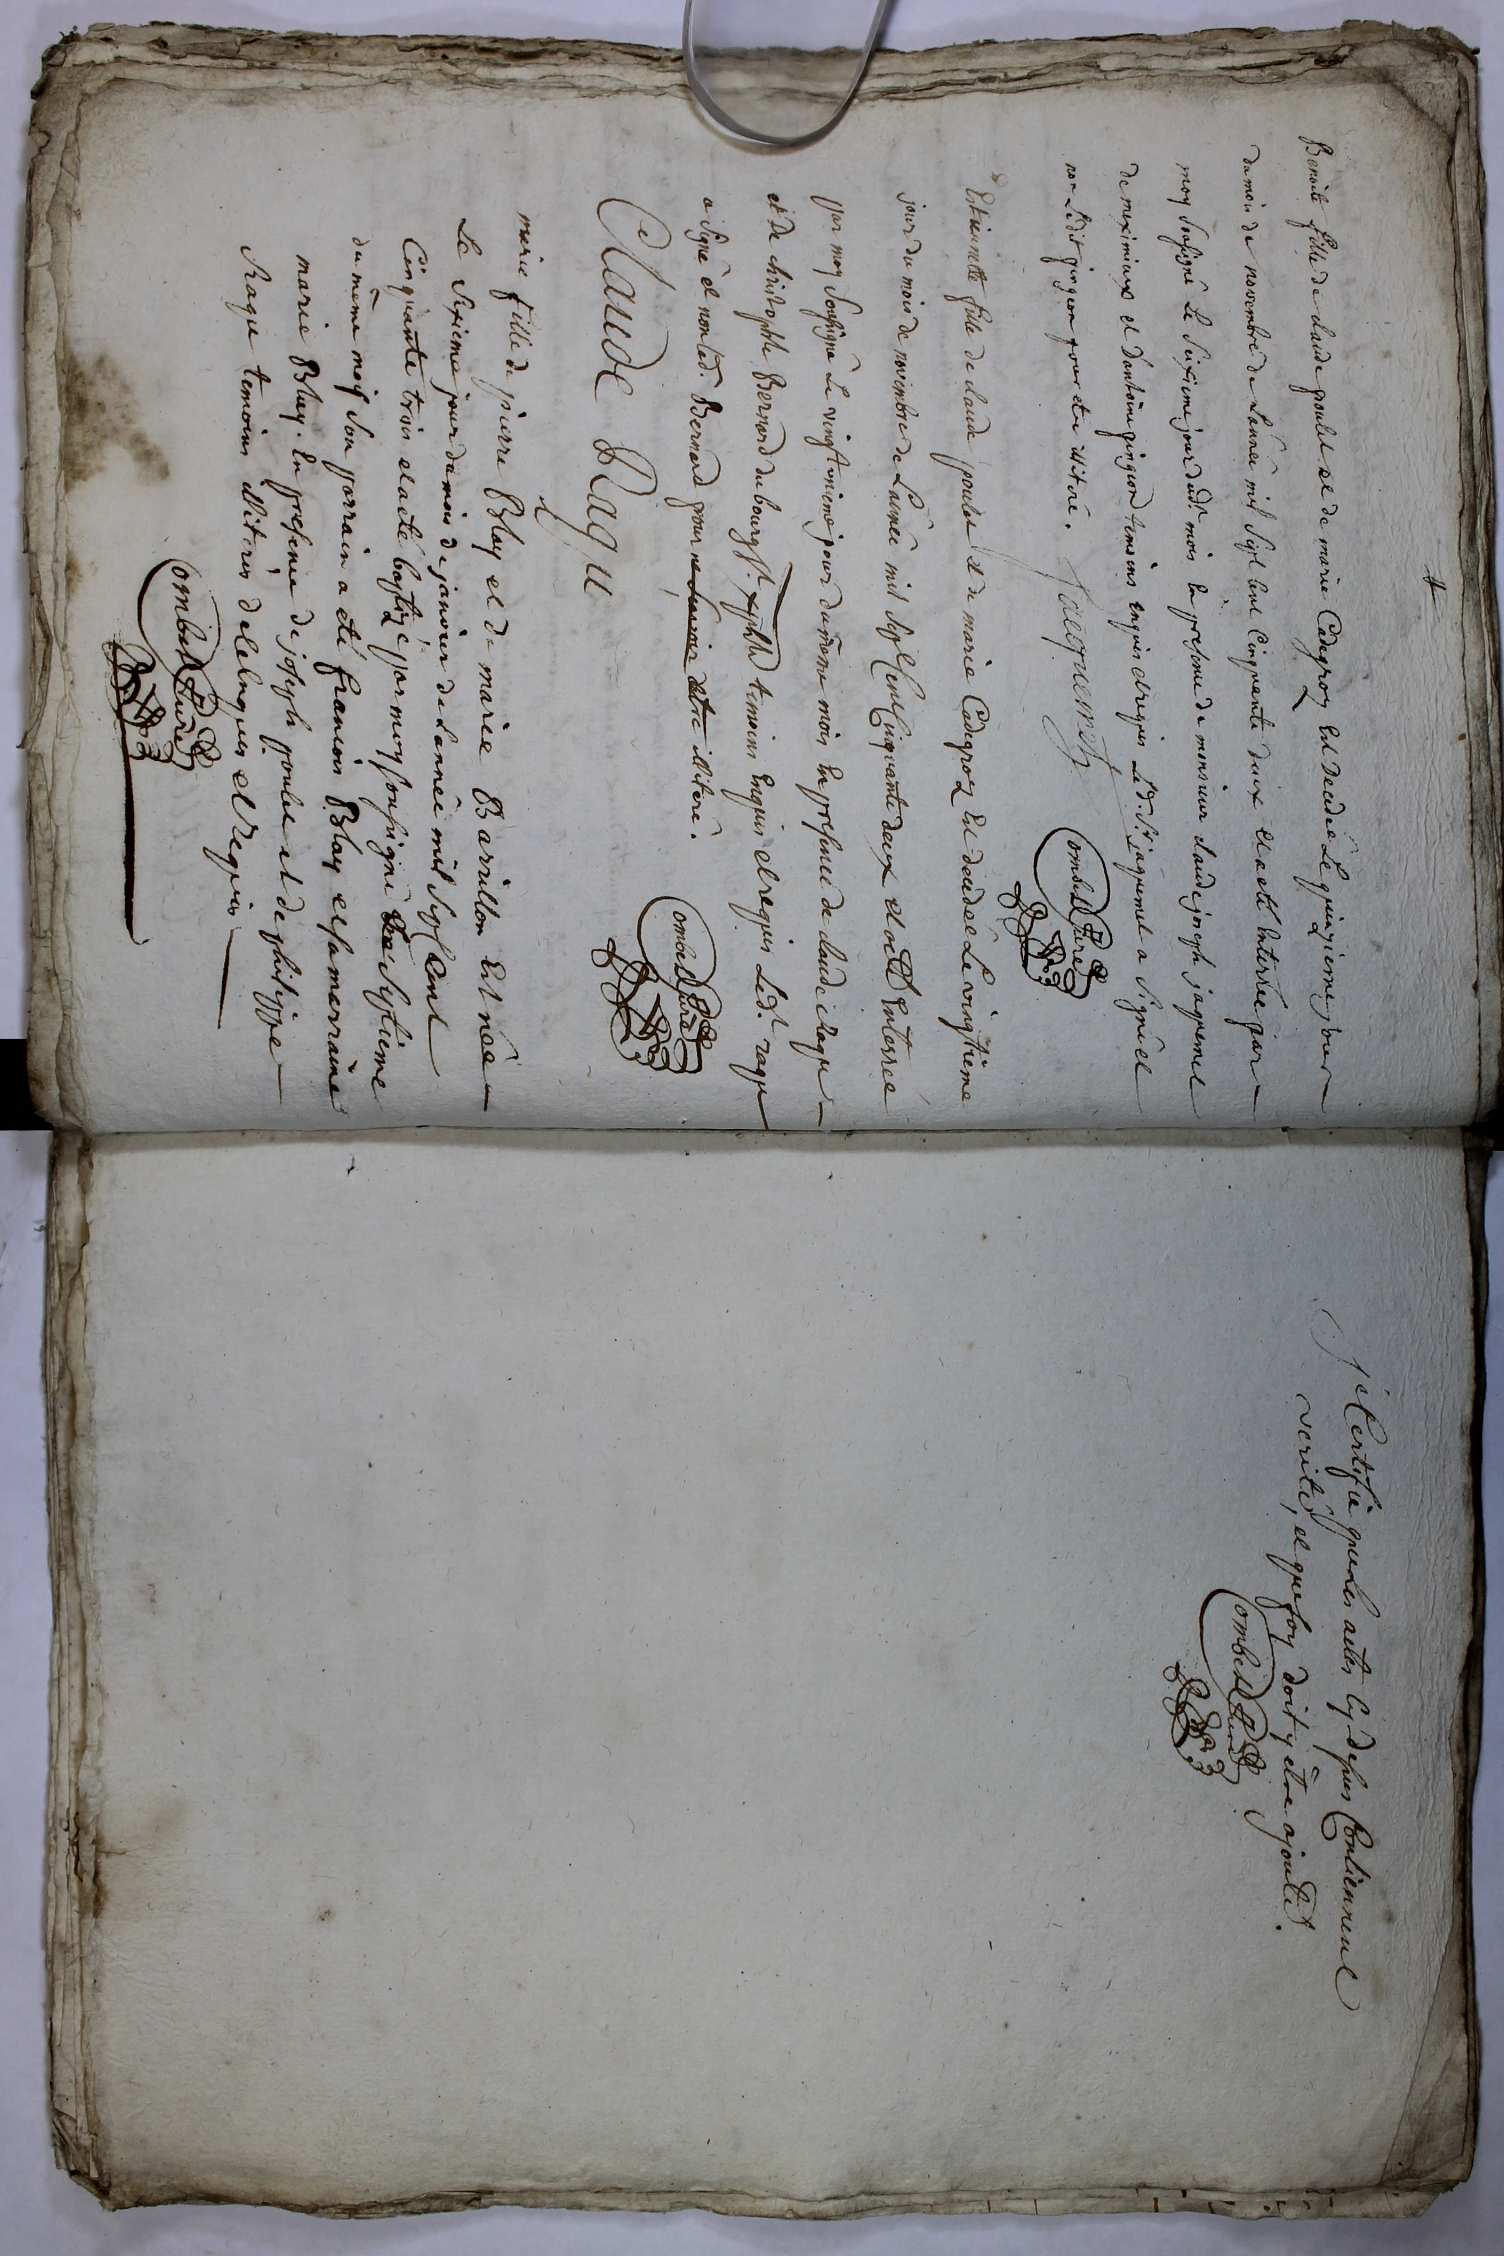 4
Benoite fille de claude poulet et de marie Cadegros Est decedée Le quinzieme jour
du mois de novembre de L'année mil sept cent cinquante deux et a été Enterrée par
moy soussigné Le Seizieme jour dudt. mois En presence de monsieur claude joseph jaquemet
de meximieux et d'antoine gingeon temoins Enquis et requis Ledt. Sr. jaquemet a signé et
non Ledit gingeon pour etre illiteré. Jacquemet
Combet Curé
Estiennette fille de claude poulet et de marie Cadegros Est decedée Le vingtième
jour du mois de novembre de L'année mil sept Cent Cinquante deux et a été Enterrée
par moy soussigné Le vingt unieme jour du même mois En presence de claude Ragu
et de christophle Bernard du bourg St. temoins Enquis et requis Ledt. ragu
a signé et non Ledt. Bernard pour ne etre illiteré.
Claude Ragu
Combet Curé
marie fille de pierre Blay et de marie Barillon Est née
Le sixieme jour du mois de janvier de L'année mil sept Cent
Cinquante trois et a été baptizé par moy soussigné Le septieme
du même mois son parrain a été francois Blay et sa marraine
marie Blay. En presence de joseph poulet et de philippe
Rague temoins illiterés Enquis et Requis
Combet Curé
je Certifie que Les actes Cy dessus Contiennent
verité, et que foy doit y être ajoutée.
Combet Curé